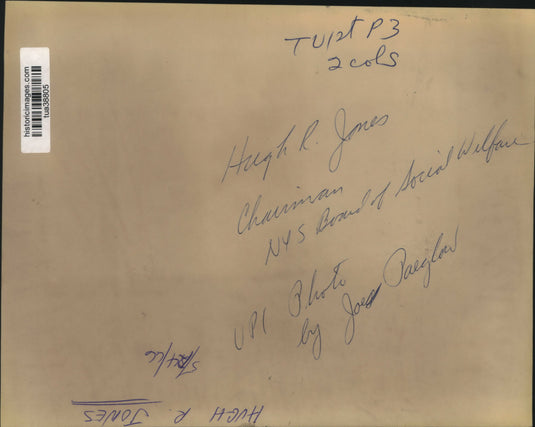 TU 1st P3
2 cols
historicimages.com
tua38805
Hugh R. Jones
Chairman
NYS Board of Social Welfare
UPI Photo
by Joe Paeglow
HUGH R. JONES